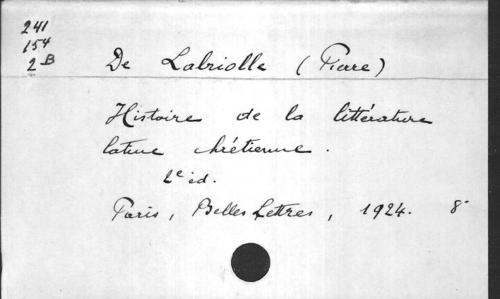 241
154
2 B
De Labriolle (Pierre)
Histoire de la littérature
latine chrétienne.
2e éd.
Paris, Belles Lettres, 1924. 8°